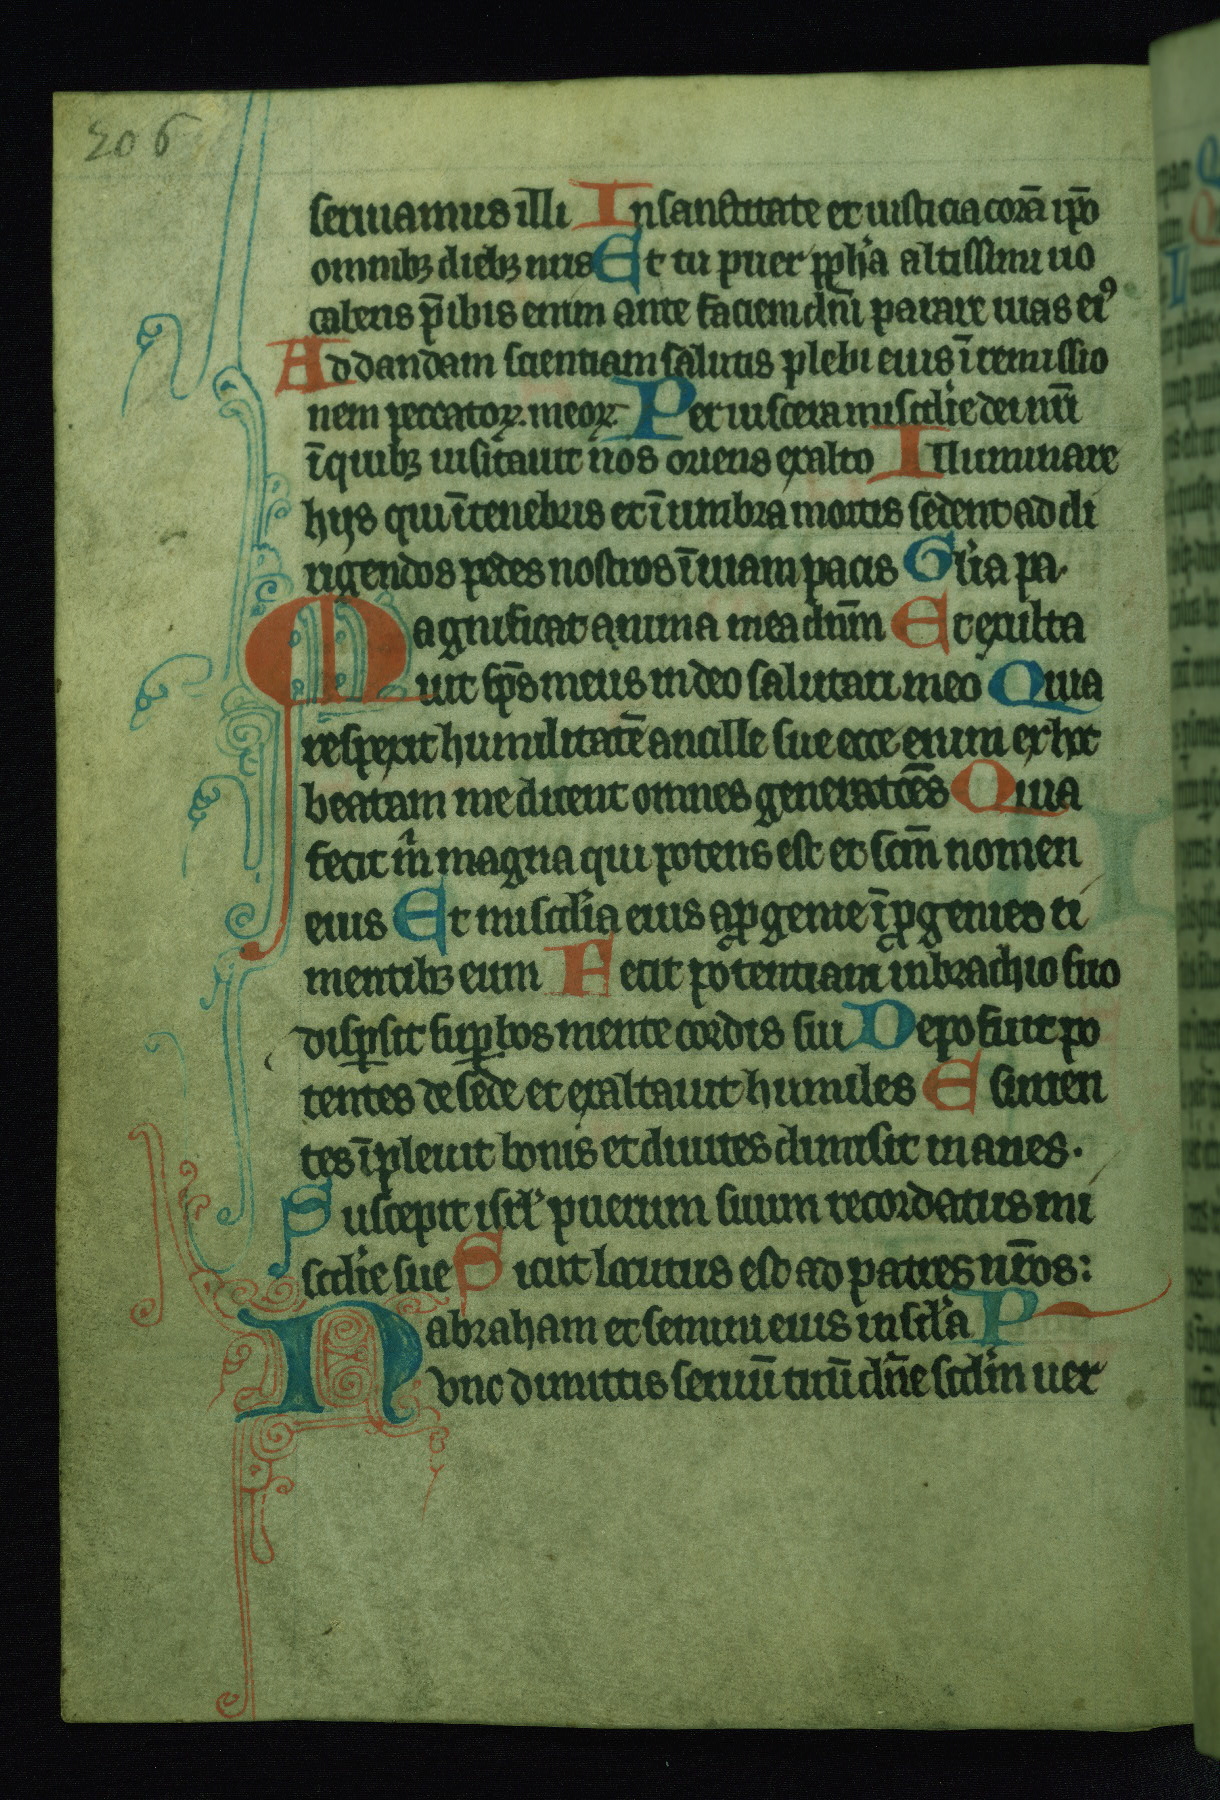 206
seruiamus illi In sanctitate et iusticia corā ip̄o
omnibꝫ diebꝫ nr̄is Et tu puer ꝓph̄a altissimi uo
caberis p̄ibis enim ante faciem dn̄i parare uias eiꝰ
Ad dandam scientiam salutis plebi eius ī remissio
nem peccatoꝝ meoꝝ Per uiscera mis̄cdie dei nr̄i
ī quibꝫ uisitauit nos oriens exalto Illuminare
hijs qui ī tenebris et ī umbra mortis sedent ad di
rigendos pedes nostros ī uiam pacis Gl̄ia pa
Magnificat anima mea dn̄m Et exulta
uit sp̄s meus in deo salutari meo Quia
respexit humilitatē ancille sue ecce enim ex hoc
beatam me dicent omnes generatōes Quia
fecit m̄ magna qui potens est et sc̄m nomen
eius Et mis̄cdia eius a ꝓgenie ī ꝓgenies ti
mentibꝫ eum Fecit potentiam in brachio suo
disꝑsit suꝑbos mente cordis sui Deposuit po
tentes de sede et exaltauit humiles Esurien
tes īpleuit bonis et diuites dimisit inanes.
Suscepit isrl̄ puerum suum recordatus mi
sc̄die sue Sicut locutus est ad patres nr̄os:
abraham et semini eius in sc̄la P
Nunc dimittis seruū tuū dn̄e scd̄m uer